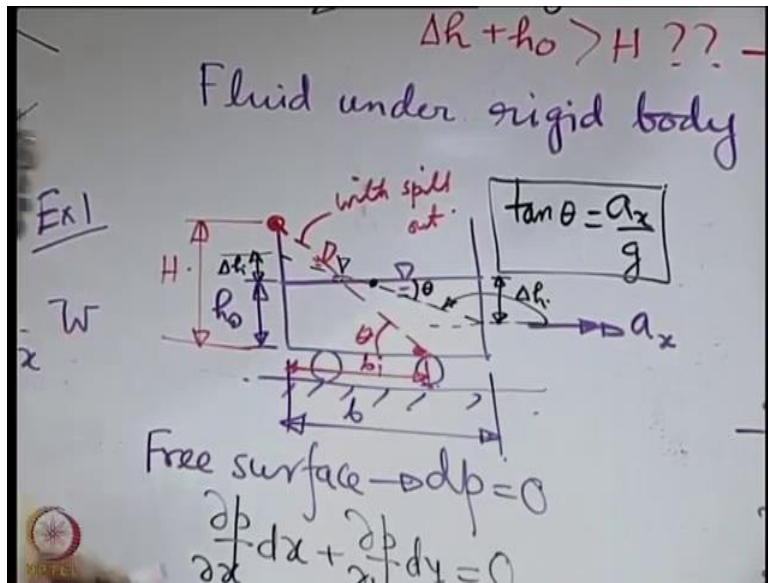 Δh + h₀ > H ??
Fluid under rigid body
Ex1
with spill
out
tan θ = aₓ/g
H
Δh
h₀
θ
Δh
aₓ
W
x
θ
b₁
b
Free surface → dp = 0
∂p/∂x dx + ∂p/∂y dy = 0
NPTEL